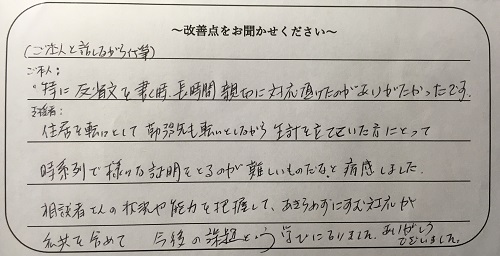 ～改善点をお聞かせください～
(ご本人と話しながら代筆)
ご本人:
・特に反省文を書く時、長時間親切に対応頂けたのがありがたかったです。
支援者:
住居を転々として勤務先も転々としながら生計を立てていた方にとって
時系列で様々な証明をとるのが難しいものだなと痛感しました。
相談者さんの状況や能力を把握して、あきらめずにすむ対応が
私共を含めて 今後の課題という学びになりました。ありがとうございました。